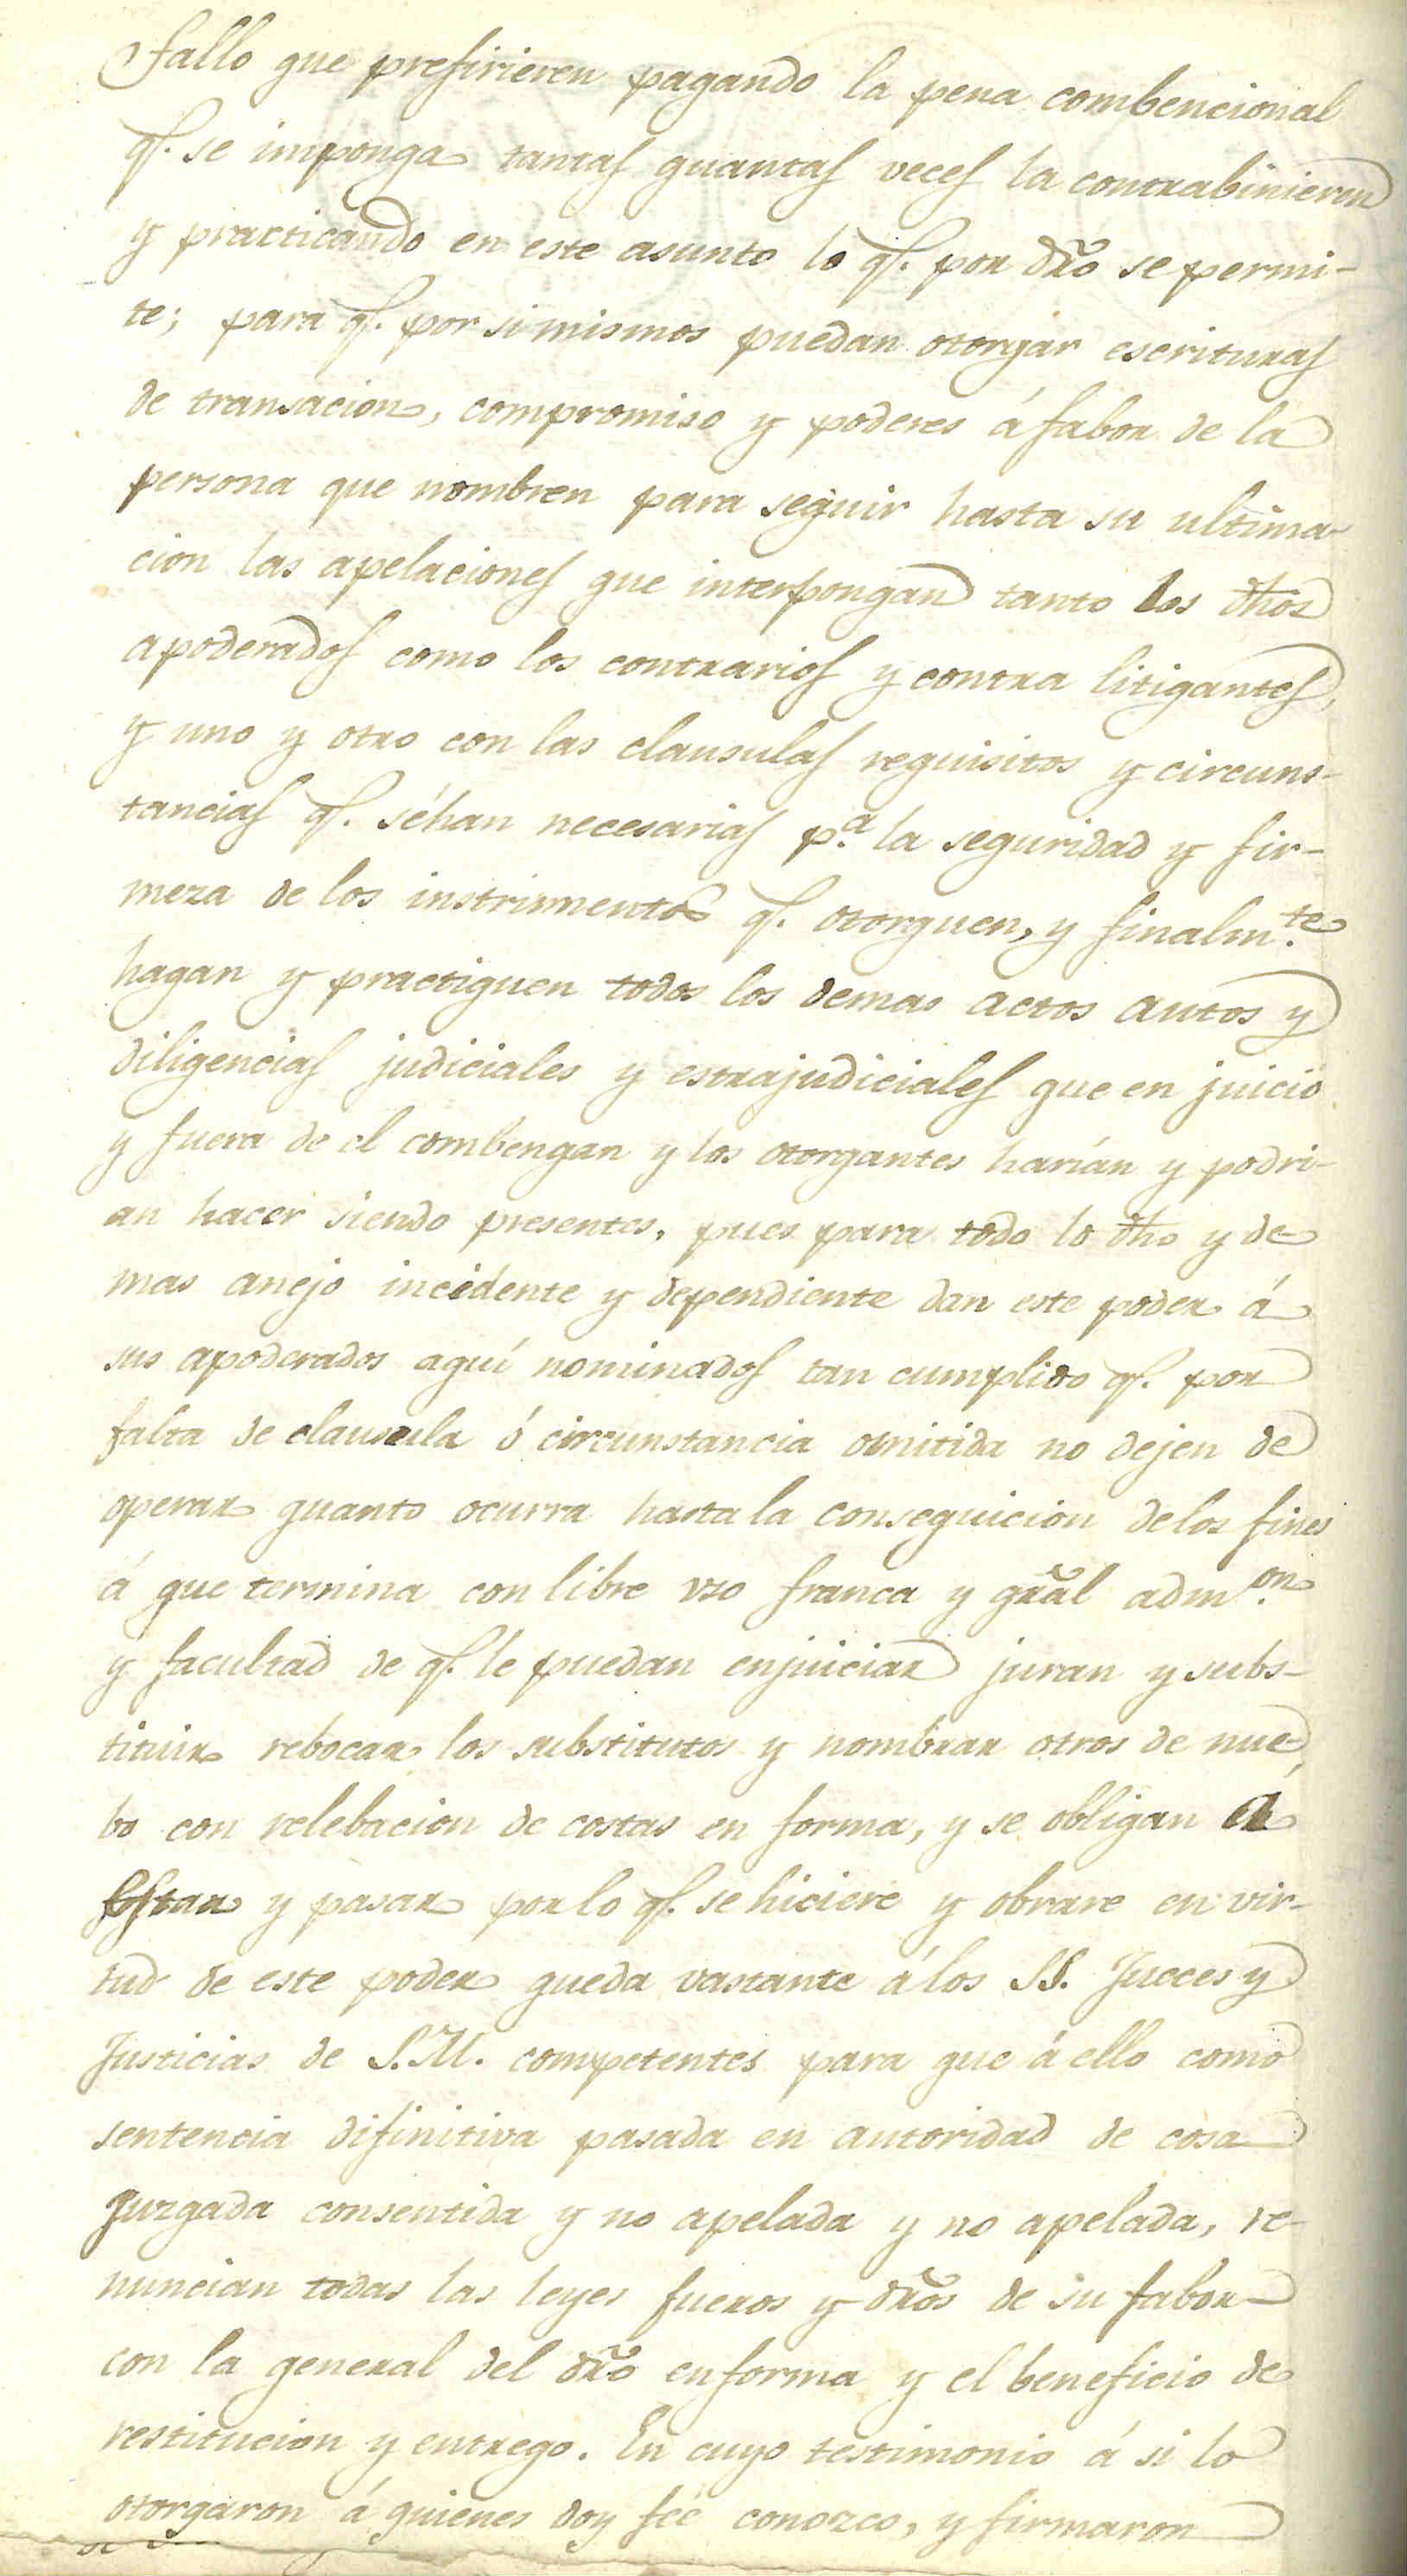 fallo que prefirieren pagando la pena combencional
qe. se imponga tantas quantas veces la contrabinieren
y practicando en este asunto lo qe. por dr̃o se permi-
te; para qe. por si mismos puedan otorgar escrituras
de transacion, compromiso y poderes á fabor de la
persona que nombren para seguir hasta su ultima-
cion las apelaciones que interpongan tanto los dhos
apoderados como los contrarios y contra litigantes,
y uno y otro con las clausulas requisitos y circuns-
tancias qe. séhan necesarias pa. la seguridad y fir-
meza de los instrumentos qe. otorguen, y finalmte.
hagan y practiquen todos los demas actos autos y
diligencias judiciales y estrajudiciales que en juicio
y fuera de el combengan y los otorgantes harían y podri-
an hacer siendo presentes, pues para todo lo dho y de
mas anejo incidente y dependiente dan este poder á
sus apoderados aquí nominados tan cumplido qe. por
falta de clausula ó circunstancia omitida no dejen de
operar quanto ocurra hasta la conseguicion de los fines
á que termina con libre vso franca y gr̃al admon.
y facultad de qe. le puedan enjuiciar juran y subs-
tituir rebocar los substitutos y nombrar otros de nue-
bo con relebacion de costas en forma, y se obligan á
estar y pasar por lo qe. se hiciere y obrare en vir-
tud de este poder queda vastante á los SS. Jueces y
Justicias de S.M. competentes para que á ello como
sentencia difinitiva pasada en autoridad de cosa
Juzgada consentida y no apelada y no apelada, re-
nuncian todas las leyes fueros y dr̃os de su fabor
con la general del dr̃o en forma y el beneficio de
restitucion y entrego. En cuyo testimonio á si lo
otorgaron á quienes doy fée conozco, y firmaron